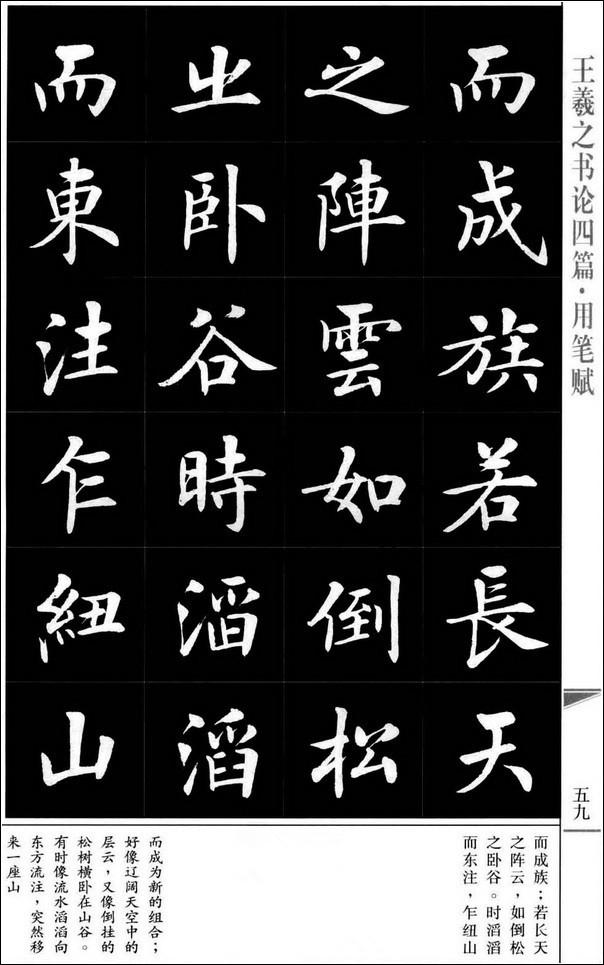 王羲之书论四篇·用笔赋
五九
而成族若長天
之陣雲如倒松
㞢卧谷時滔滔
而東注乍紐山
而成族；若长天
之阵云，如倒松
之卧谷。时滔滔
而东注，乍纽山
而成为新的组合；
好像辽阔天空中的
层云，又像倒挂的
松树横卧在山谷。
有时像流水滔滔向
东方流注，突然移
来一座山